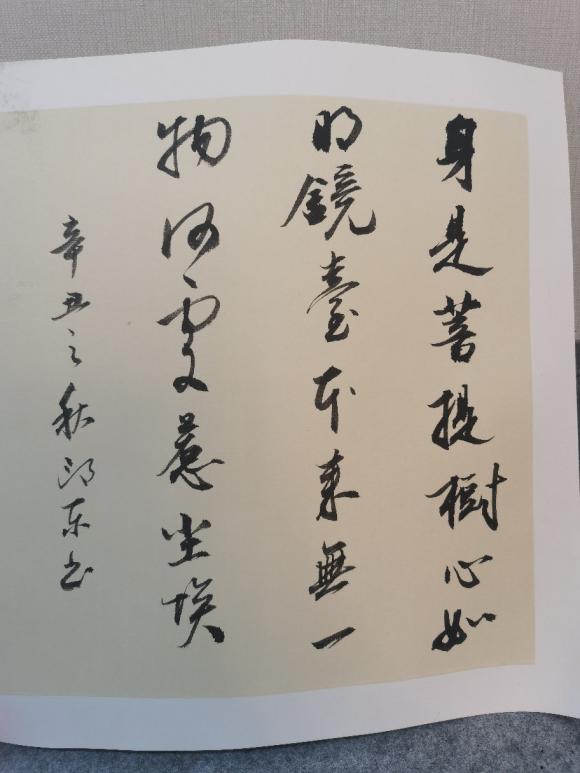 身是菩提樹心如
明鏡臺本来無一
物何處惹尘埃
辛丑之秋东书